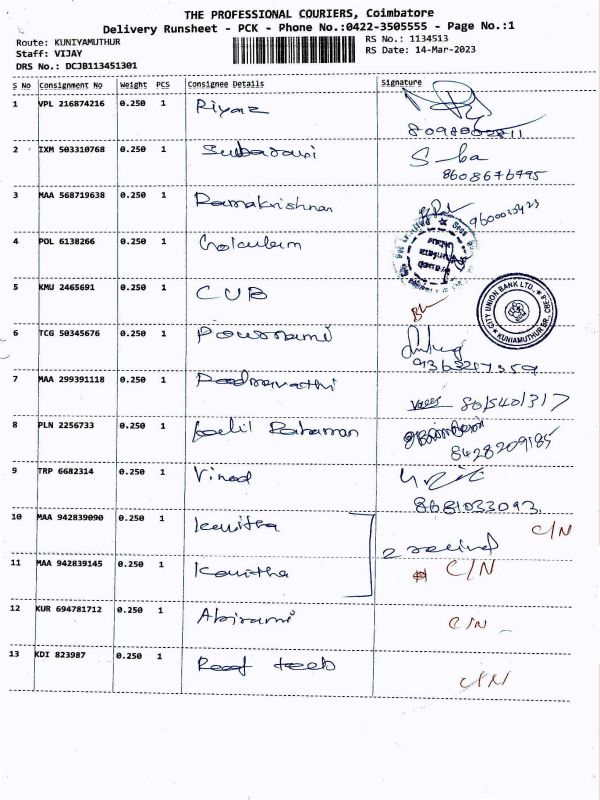 THE PROFESSIONAL COURIERS, Coimbatore
Delivery Runsheet - PCK - Phone No.:0422-3505555 - Page No.:1
Route: KUNIYAMUTHUR
RS No.: 1134513
Staff: VIJAY
RS Date: 14-Mar-2023
DRS No.: DCJB113451301
S No Consignment No Weight PCS Consignee Details Signature
1 VPL 216874216 0.250 1 Riyaz
2 IXM 503310768 0.250 1 Subarani S-ba
8608676795
3 MAA 568719638 0.250 1 Ramakrishnan
4 POL 6138266 0.250 1
5 KMU 2465691 0.250 1 CUB
CITY UNION BANK LTD., CBE-8 KUNIAMUTHUR BR.
6 TCG 50345676 0.250 1 Pournami
9363207359
7 MAA 299391118 0.250 1 Padmavathi
8 PLN 2256733 0.250 1 Rahaman
8428209185
9 TRP 6682314 0.250 1 Vinod
8681033093
10 MAA 942839090 0.250 1 Kavitha C/N
2
11 MAA 942839145 0.250 1 Kavitha C/N
12 KUR 694781712 0.250 1 Abirami C/N
13 KDI 823987 0.250 1 Reef C/N